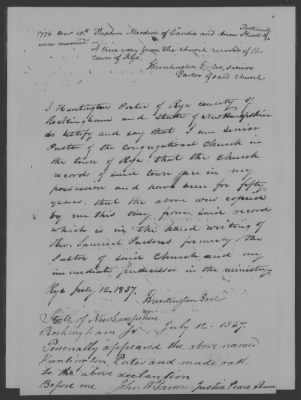 1776 Nov 10th Stephen of Candia and Anna of
were married
A true copy from the church records of the
town of Rye.
Huntington Porter, senior
Pastor of said church
I Huntington Porter of Rye county of
Rockingham and State of New Hampshire
do testify and say that I am Senior
Pastor of the Congregational Church in
the town of Rye that the church
records of said town are in my
possession and have been for fifty
years. that the above was copied
by me this day, from said records
which is in the hand writing of
Rev. Samuel Parsons formerly the
Pastor of said Church and my
immediate predecessor in the ministry
Rye July 12, 1837.
Huntington Porter
State of New Hampshire
Rockingham Ss July 12. 1837.
Personally appeared the above named
Huntington Porter and made oath
to the above declaration
Before me John W Parsons Justice Peace